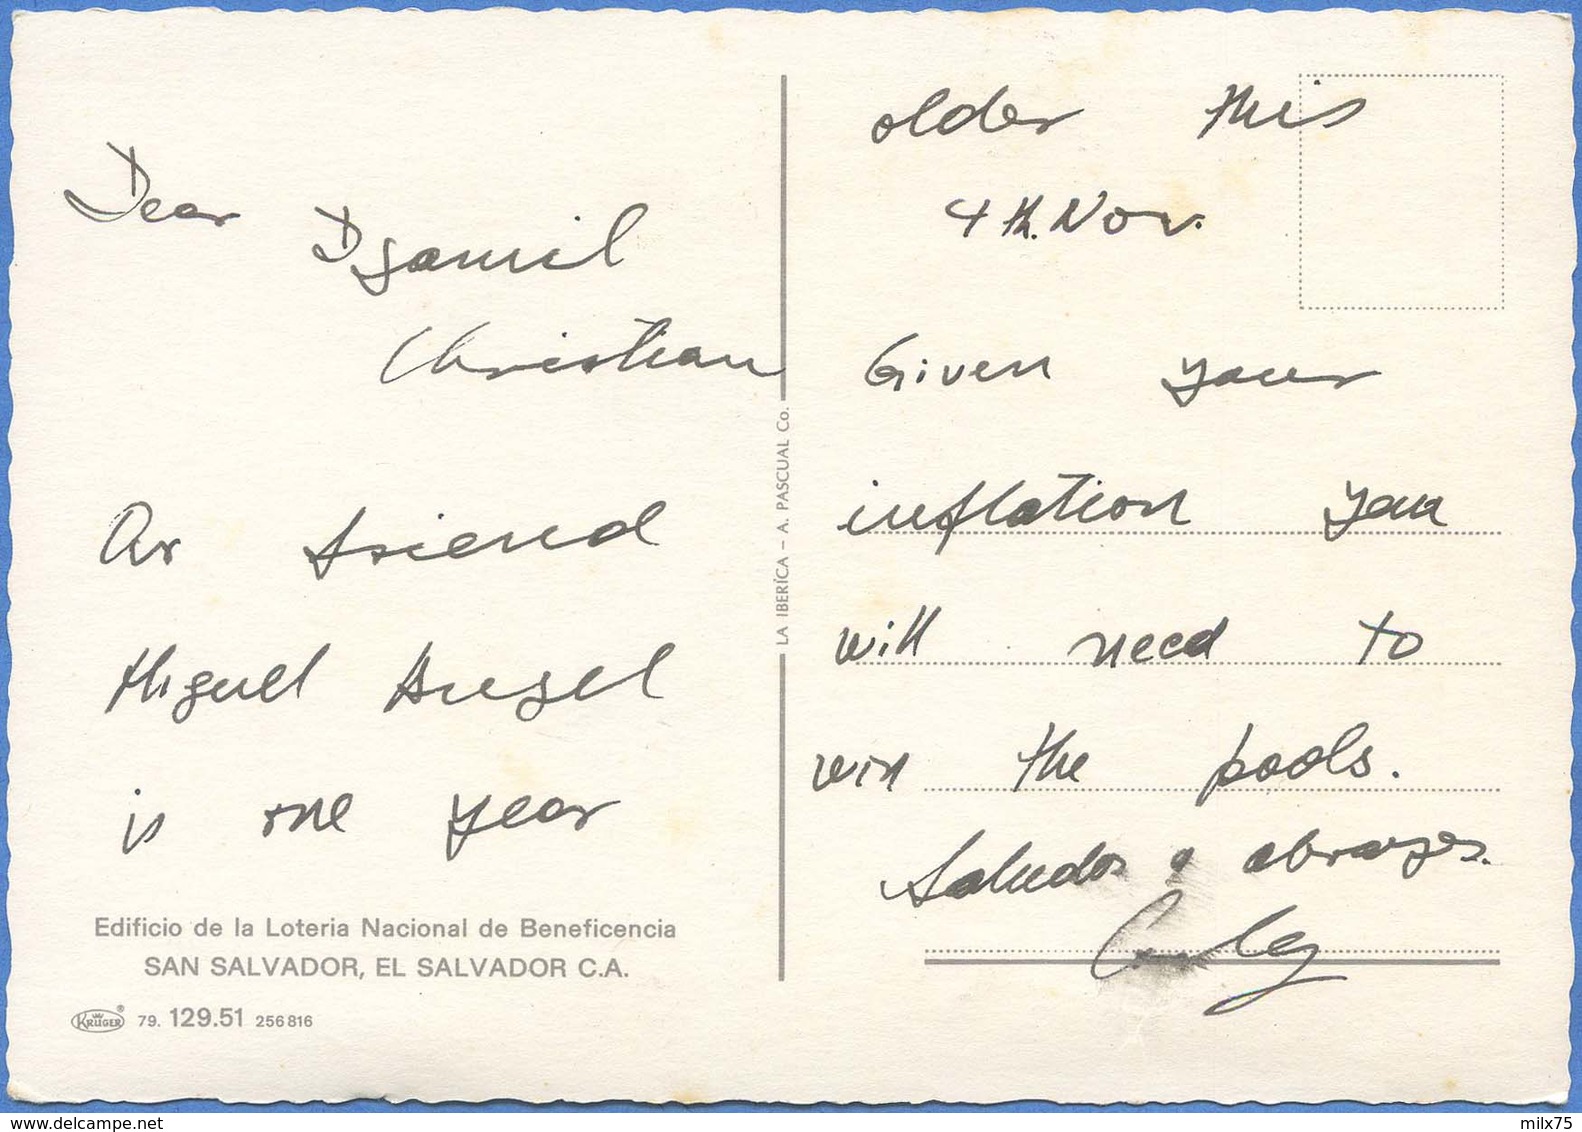 Dear Djamil
Christian
Our friend
Miguel Angel
is one year
older this
4th. Nov.
Given your
inflation you
will need to
win the pools.
Saludos y abrazos.
Edificio de la Loteria Nacional de Beneficencia
SAN SALVADOR, EL SALVADOR C.A.
KRÜGER® 79. 129.51 256 816
LA IBERÍCA – A. PASCUAL Co.
www.delcampe.net
milx75